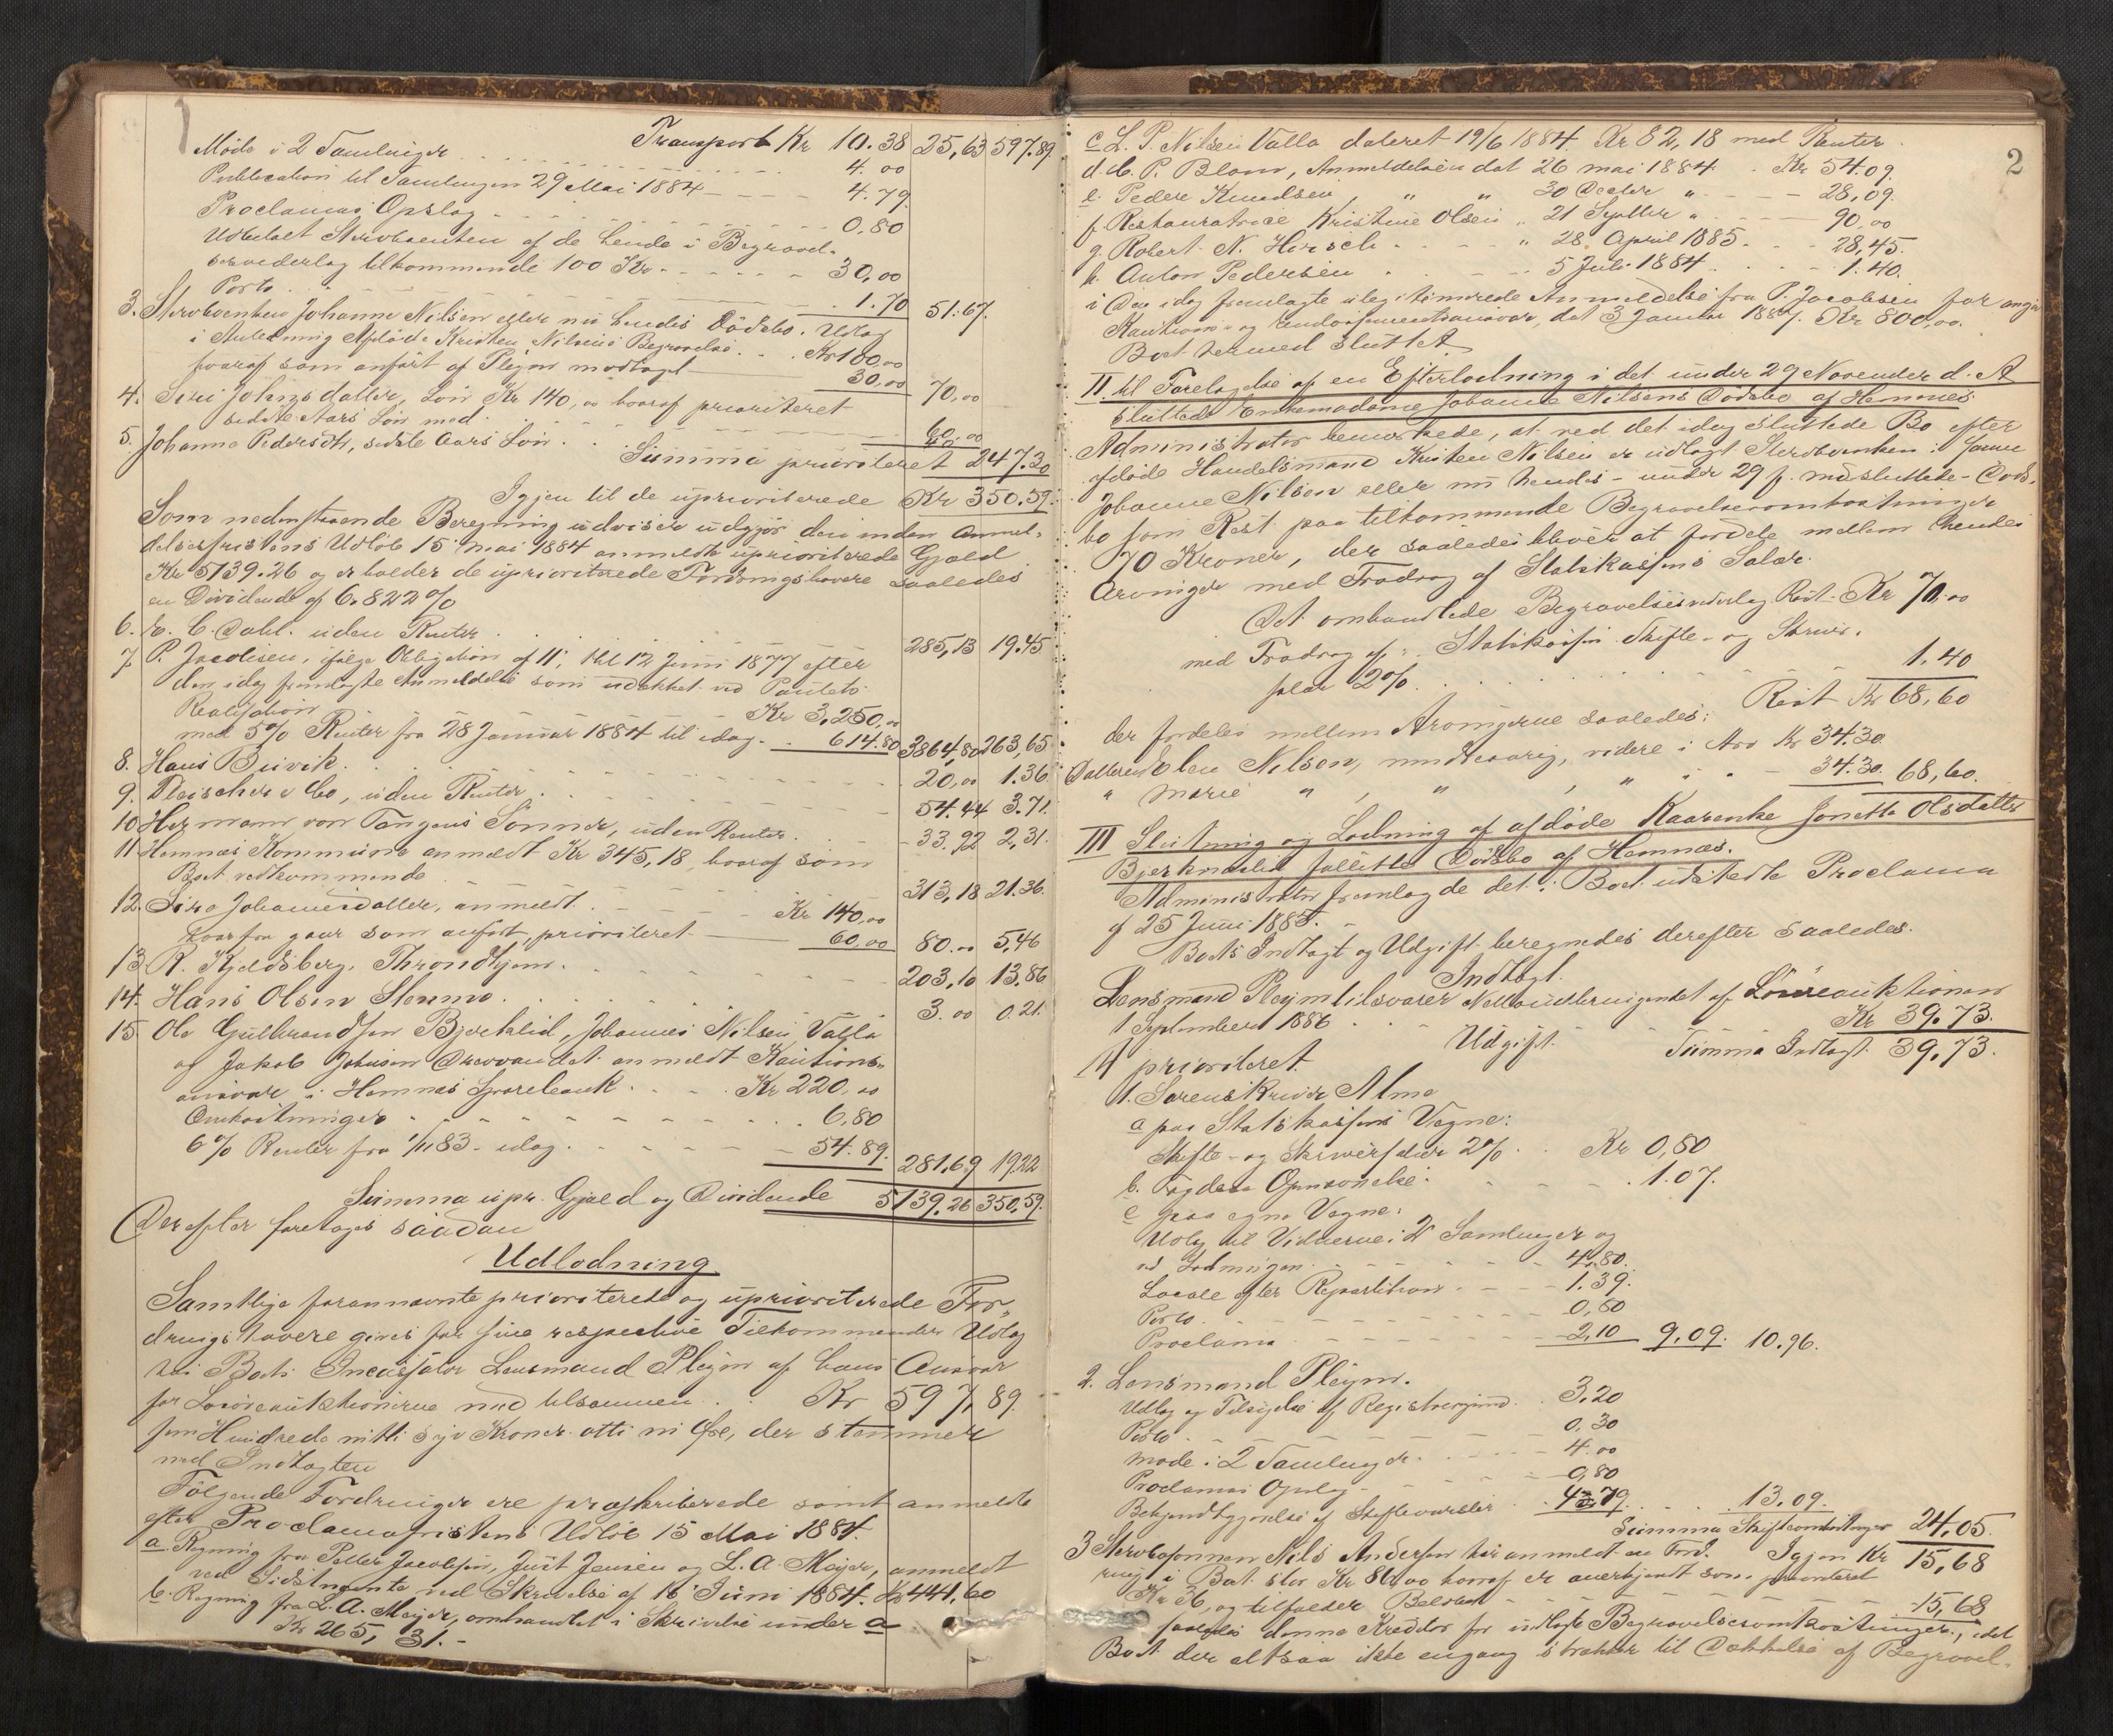 Transport Kr 10.38 25,63 597.89
Møde i 2 Samlinger 4.00
Publication til Samlingen 29 Mai 1884 4.79
Proclamas Opslag 0.80
Udbetalt Stervboenken af de hende i Begravel-
sesvederlag tilkommende 100 Kr. 30,00
Porto 1.70 51.67.
3. Stervboenken Johanne Nilsen eller nu hendes Dödsbo. Udlæg
i Anledning Afdöde Kristen Nilsens Begravelse. Kr 100,00
hvoraf som anfört af Pleym modtaget 30.00 70,00
4. Siri Johnsdatter, Lön Kr 140,00 hvoraf prioriteret
sidste Aars Lön med 60.00
5. Johanna Pedersdtr, sidste Aars Lön 40.00
Summa prioriteret 247.30
Igjen til de uprioriterede Kr 350.59.
Som nedenstaaende Beregning udviser udgjör den inden Anmel-
delsesfristens Udlöb 15 Mai 1884 anmeldte uprioriterede Gjæld
Kr 5139.26 og erholder de uprioriterede Fordringshavere saaledes
en Dividende af 6.822%
6. E. C. Dahl. uden Renter 285,13 19.45
7. P. Jacobsen, ifölge Obligation af 11, thl 12 Juni 1877 efter
den idag fremlagte Anmeldelse som udækket ved Pantets
Realisation Kr 3,250.00
med 5% Renter fra 28 Januar 1884 til idag 614.80 3864,80 263,65
8. Hans Buvik 20,00 1.36
9. Fleischer & Co, uden Renter 54.44 3.71.
10 Hermann von Tangens Sönner, uden Renter 33.92 2,31.
11 Hemnæs Kommune anmeldt Kr 345,18, hvoraf som
Boet vedkommende 313,18 21.36.
12. Siri Johannesdatter, anmeldt Kr 140,00
hvorfra gaar som anfört, prioriteret 60,00 80.00 5,46
13. R. Kjeldsberg, Throndhjem. 203,10 13,86
14. Hans Olsen Stenmo 3.00 0.21.
15. Ole Gulbrandsen Bjerklid, Johannes Nilsen Valla
og Jakob Johnsen Drevvandet anmeldt Kautions-
ansvar i Hemnæs Sparebank Kr 220,00
Omkostninger 6,80
6% Renter fra 1/11 83 - idag 54.89. 281,69 19.22
Summa upr. Gjæld og Dividende 5139.26 350,59.
Derefter foretoges saadan
Udlodning
Samtlige forannævnte prioriterede og uprioriterede For-
dringshavere gives for sine respektive Tilkommender Udlæg
hos Boets Incassator Lensmand Pleym af hans Ansvar
for Lösöreauktionerne med tilsammen Kr 597,89.
fem Hundrede nitti syv Kroner otti ni Öre, der stemmer
med Indtægten
Fölgende Fordringer ere præskriberede samt anmeldte
efter Proclamafristens Udlöb 15 Mai 1884.
a. Regning fra Petter Jacobsen, Just Jensen og L. A. Meyer, anmeldt
ved Sidstnævnte ved Skrivelse af 16 Juni 1884. Kr 441,60
b. Regning fra L. A. Meyer, omhandlet i Skrivelse under a
Kr 265,31.-
2
c L. P. Nilsen Valla dateret 19/6 1884 Kr 82,18 med Renter.
d. C. P. Blom, Anmeldelsen dat 26 mai 1884 Kr 54.09.
e. Peder Knudsen, " " 30 Decbr " 28,09.
f. Restauratrice Kristine Olsen " 21 Septbr " 90,00
g. Robert N. Hirsch " 28 April 1885. 28,45.
h. Anton Pedersen 5 Juli 1884 1.40.
i Den idag fremlagte ulegitimerede Anmeldelse fra P. Jacobsen for angiv
Kautions- og Endossementsansvar, dat 3 Januar 1887. Kr 800,00.
Boet hermed sluttet
II til Foretagelse af en Efterlodning i det under 29 November d. A
sluttede Enkemadame Johanne Nilsens Dödsbo af Hemnes
Administrator bemærkede, at ved det idag sluttede Bo efter
afdöde Handelsmand Kristen Nilsen er udlagt Stervboenken i samme
Johanne Nilsen eller nu hendes - under 29 f. M. sluttede - Döds-
bo som Rest paa tilkommende Begravelsesomkostninger
70 Kroner, der saaledes bliver at fordele mellem hendes
Arvinger med Fradrag af Statskassens Salær.
Det omhandlede Begravelsesvederlag Rest Kr 70.00
med Fradrag af: Statskassen Skifte- og Skriver-
salær 2% 1.40
Rest Kr 68,60
der fordeles mellem Arvingerne saaledes:
Datteren Elen Nilsen, mindreaarig, videre i Arv Kr 34.30.
" Marie " , " , " 34.30. 68,60.
III Slutning og Lodning af afdöde Kaarenke Jonetta Olsdatter
Bjerknæslid fallitte Dödsbo af Hemnæs.
Administrator fremlagde det i Boet udstedte Proclama
af 25 Juni 1885.
Boets Indtægt og Udgift beregnedes derefter saaledes.
Indtægt.
Lensmand Pleym tilsvarer Nettoudbringendet af Lösöreauktionen
1 September 1886 Kr 39.73.
Summa Indtægt 39,73.
Udgift.
1) prioriteret
1. Sorenskriver Alme
a paa Statskassens Vegne:
Skifte- og Skriversalær 2% Kr 0,80
b. Fogdens Opnævnelse 1.07.
c paa egne Vegne:
Udlæg til Vidnerne i 2 Samlinger og
ved Lodningen 4,80.
Locale efter Repartition 1.39.
Porto 0,80
Proclama 2,10 9.09. 10.96.
2. Lensmand Pleym.
Udlæg og Tilsigelse af Registrering 3,20
Porto 0,30
Møde i 2 Samlinger 4.00
Proclamas Opslag 0,80
Bekjendtgjørelse af Skiftevarsler 4.79. 13,09.
Summa Skifteomkostninger 24,05.
Igjen Kr 15,68
3 Stervbosönnen Nils Andersen har anmeldt en Ford-
ring i Boet stor Kr 86,00 hvoraf er anerkjendt som prioriteret
Kr 36, og tilfalder Beløbet 15,68
saaledes denne Kreditor for udlagte Begravelsesomkostninger, idet
Boet der altsaa ikke engang strækker til Dækkelse af Begravel-